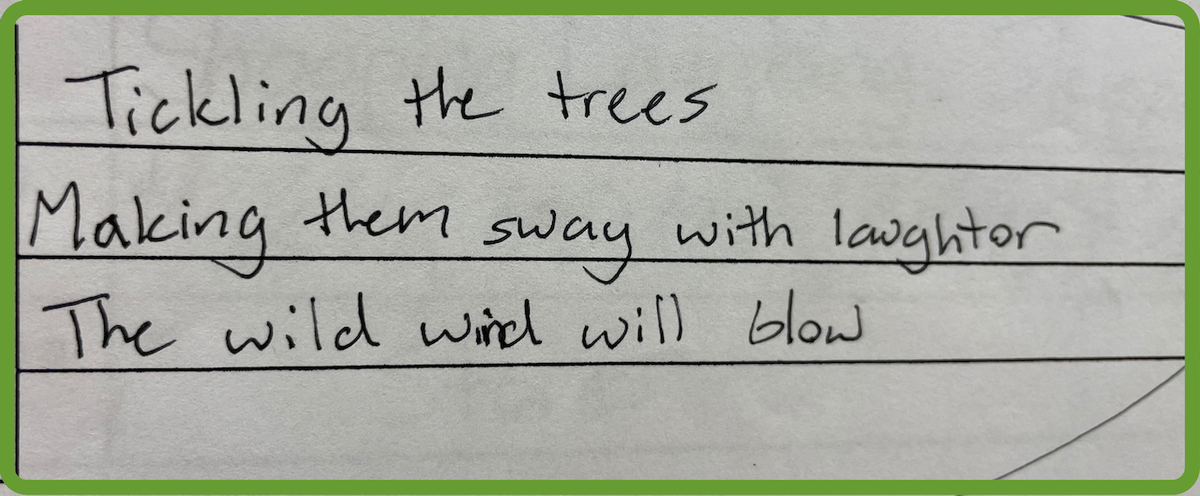 Tickling the trees
Making them sway with laughtor
The wild wind will blow